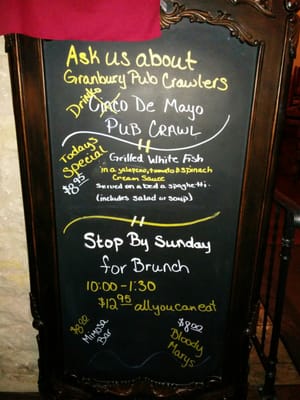 Ask us about
Granbury Pub Crawlers
Drinks
Cinco De Mayo
Pub Crawl
Todays
Special
$8.95
Grilled White Fish
in a jalapeno, tomato & spinach
Cream Sauce
Served on a bed a spaghetti.
(includes salad or soup)
Stop By Sunday
for Brunch
10:00-1:30
$12.95 all you can eat
$8.00
Mimosa
Bar
$8.00
Bloody
Marys